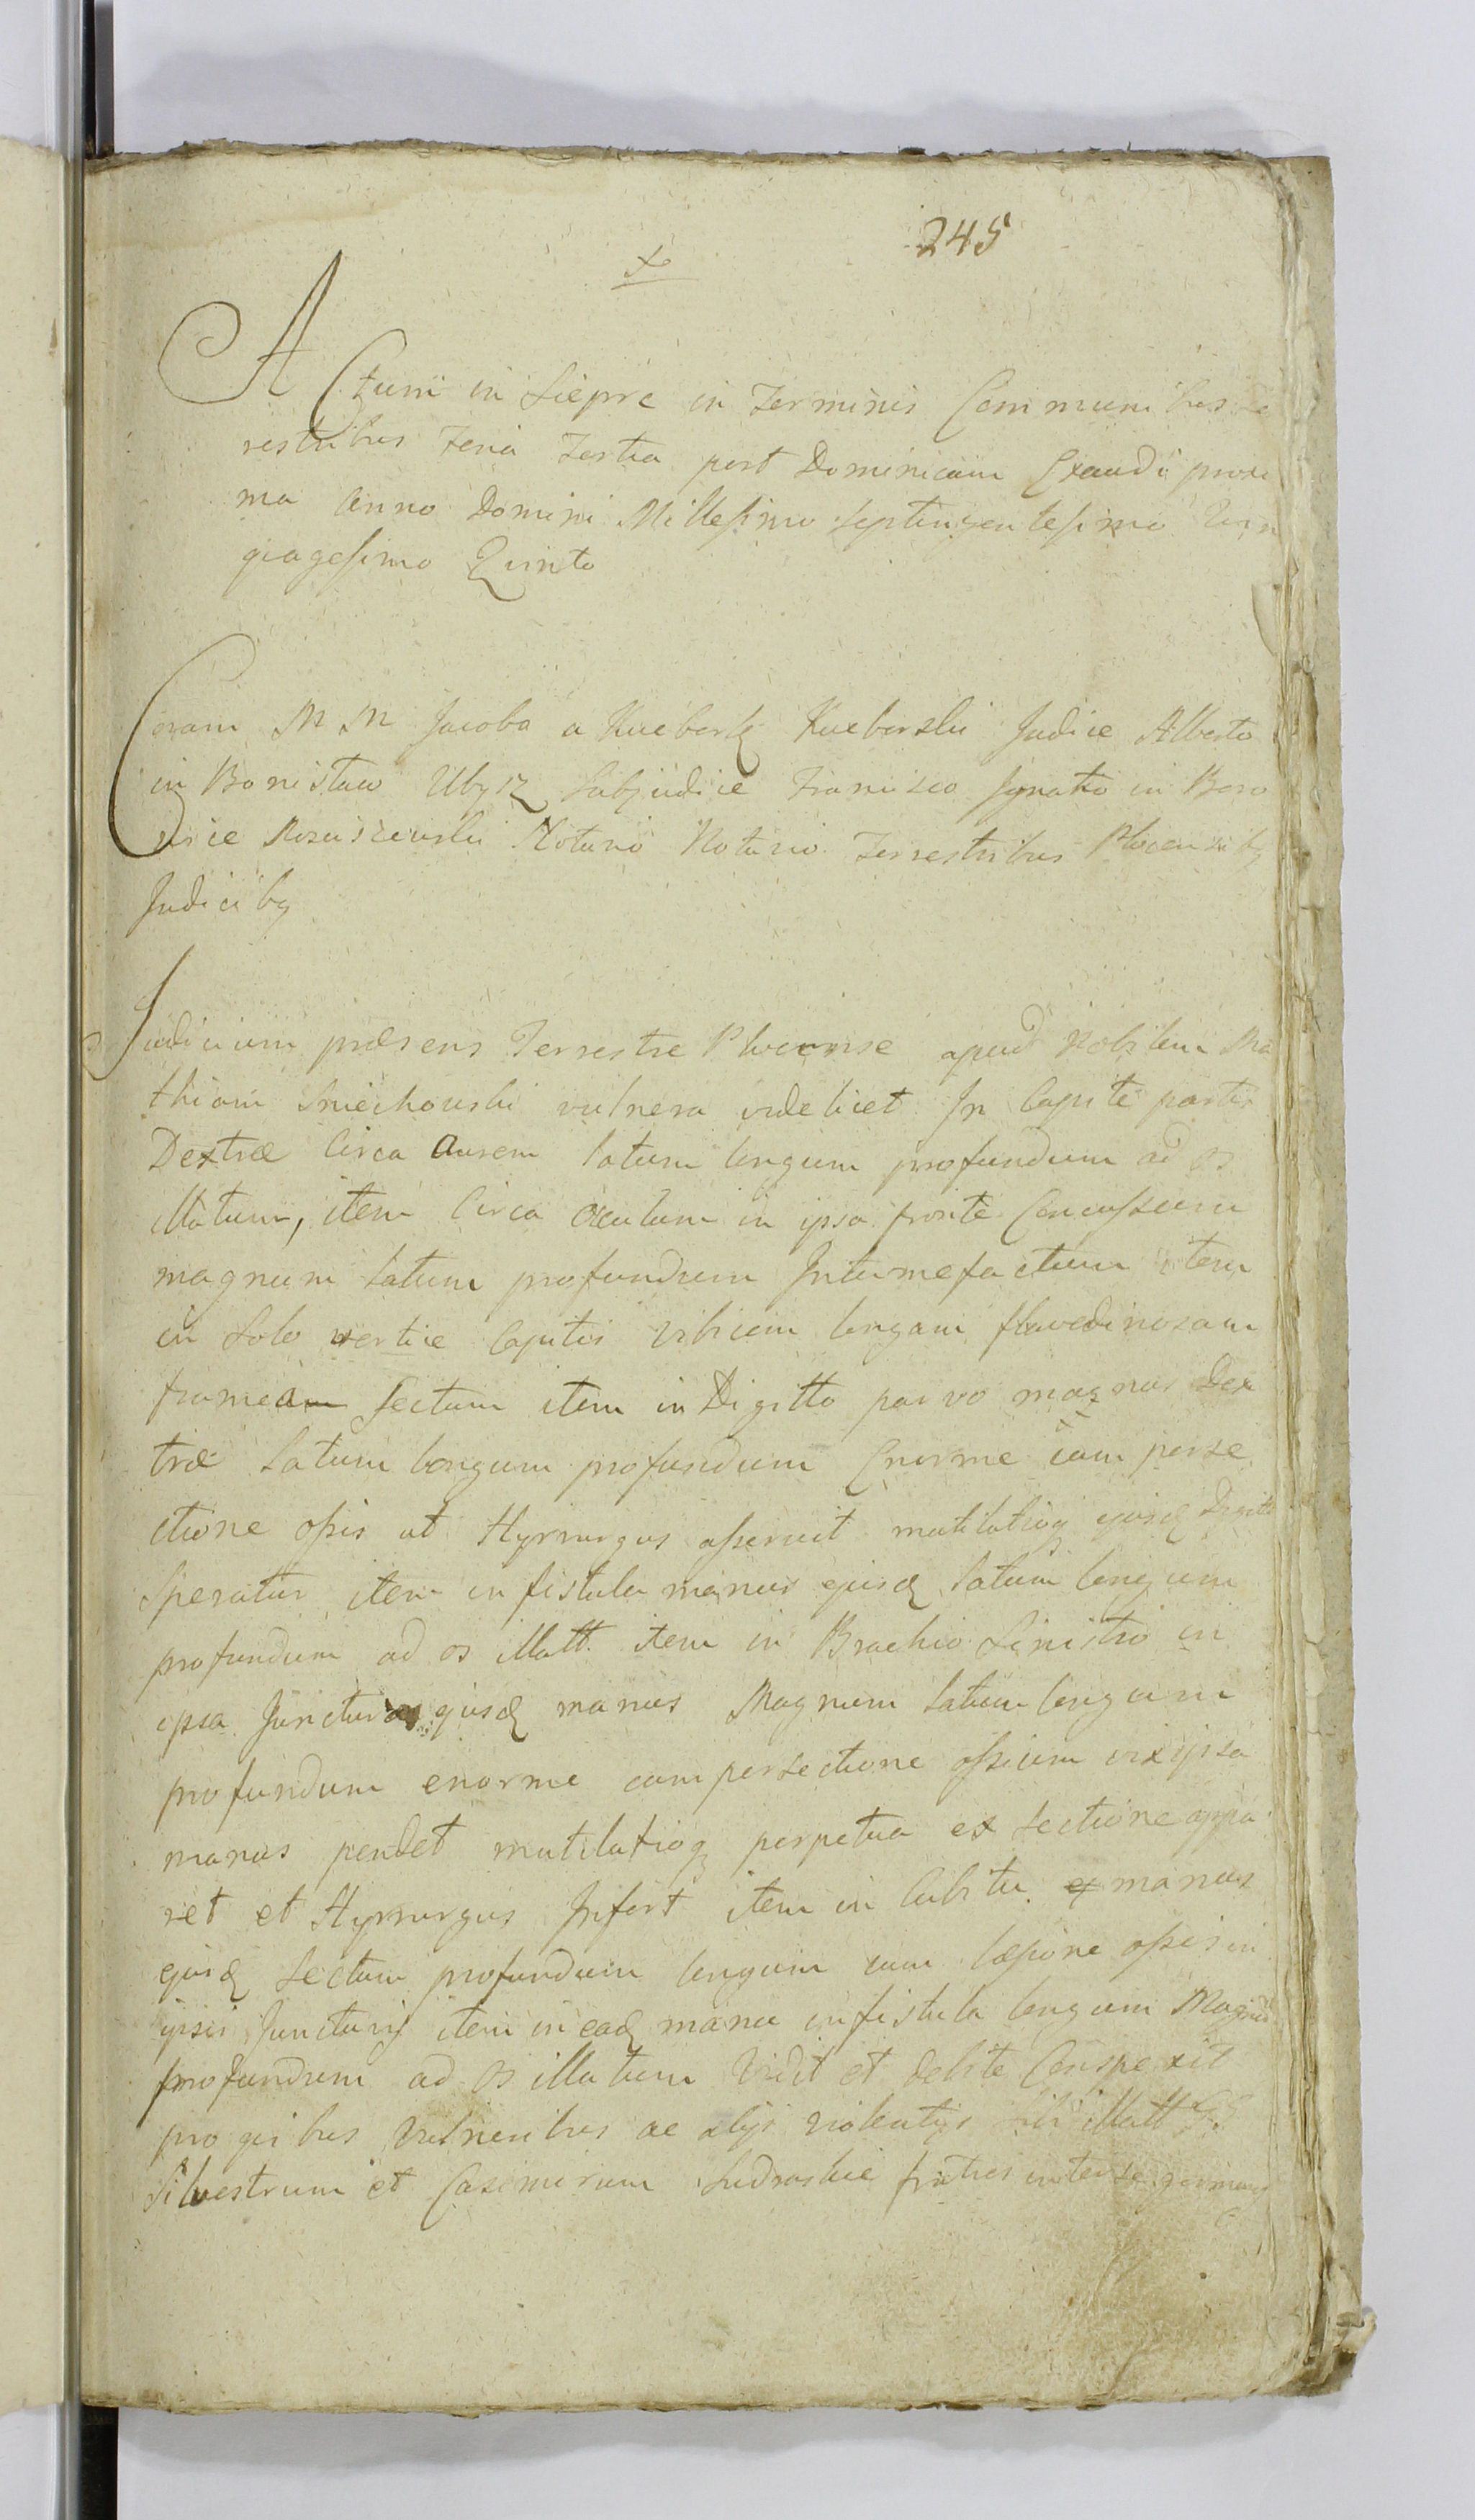 245
Actum in Siepre in Terminis Communibus Te
restribus Feria Tertia post Dominicam Exaudi proxi
ma Anno Domini Millesimo Septingentesimo
quagesimo Quinto
Coram M M Jacobo a Kucbork Kucborski Judice Alberto
in Bonisław Ubysz Subjudice Francisco Ignatio in Boro
wice Rosciszewski Notario Notario Terrestribus Plocensibq
Judicibq
Judicium præsens Terrestre Plocense apud Nobilem Ma
thiam Sniechowski vulnera videlicet In Capite partis
Dextræ Circa Aurem latum longum profundum ad os
illatum, item Circa Oculum in ipsa fronte Concussum
magnum latum profundum Intumefactum item
in Solo vertice Capitis vibicem longam flavedinosam
frameam sectum item in Digitto parvo manus Dex
træ latum longum profundum Enorme cum perse
ctione ossis ut Hyrurgus asseruit mutilatioq ejusd Digitti
Speratur item in fistula manus ejusd latum longum
profundum ad os illatt. item in Brachio Sinistro in
ipsa Junctura ejusd manus Magnum latum longum
profundum enorme cum persectione ossium vix ipsa
manus pendet mutilatioq perpetua ex sectione appa
ret et Hyrurgus Infert item in Cubitu manus
ejusd sectum profundum longum cum læsione ossis in
ipsis Juncturis item in ead manu in fistula longum Magnum
profundum ad os illatum Vidit et debite Conspexit
pro quibus Vulneribus ac alijs violentijs sibi illatt GG
Silvestrum et Casimirum Sudraskie fratres inter se germanos